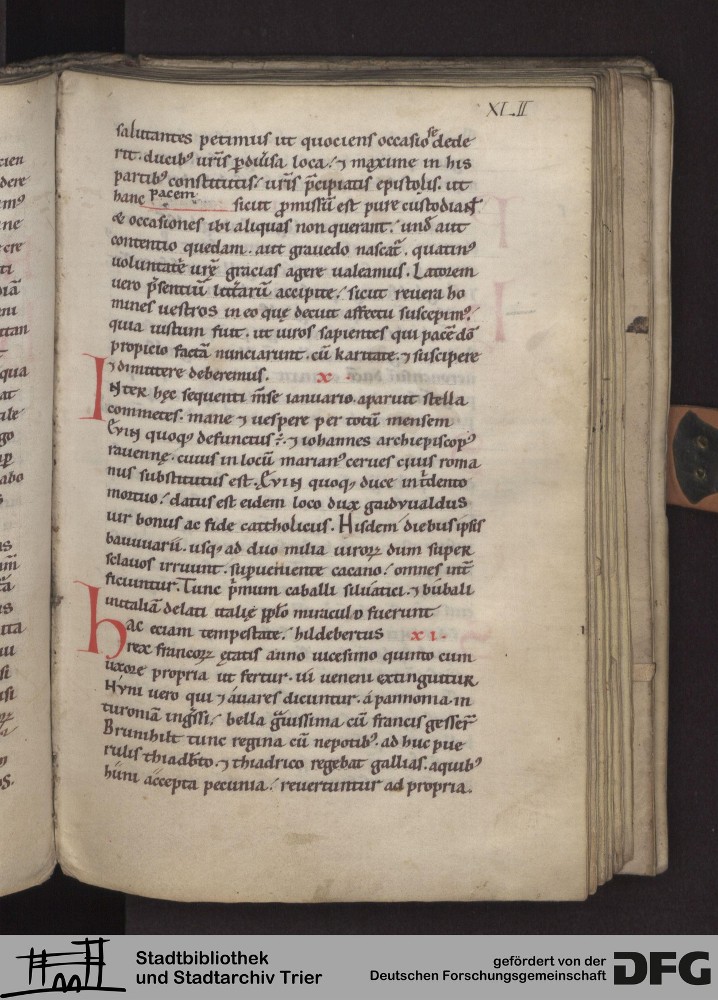 XLII
salutantes petimus ut quociens occasio se dede
rit. ducib' uris p diuersa loca. ⁊ maxime in his
partib' constitutis. uris pcipiatis epistolis. ut
hanc pacem sicut pmissū est pure custodiant
& occasiones ibi aliquas non querant. und aut
contentio quedam. aut grauedo nascat. quatin'
uoluntatē urę gracias agere ualeamus. Latorem
uero psentiū litterarū accipite. sicut reuera ho
mines uestros in eo quę decuit affectu suscepim'.
quia iustum fuit. ut uiros sapientes qui pacē dō
propicio factā nunciarunt. cū karitate. ⁊ suscipere
⁊ dimittere deberemus. x.
INTER hęc sequenti mse ianuario. aparuit stella
commetes. mane ⁊ uespere per totū mensem
EVIN quoq; defunctus. ⁊ iohannes archiepiscop'
rauennę. cuius in locū marian' ceruęs ciuis roma
nus substitutus est. EVIN quoq; duce in tdento
mortuo. datus est eidem loco dux gaidvualdus
uir bonus ac fide cattholicus. Hisdem diebus ipsis
bauuuarii. usq; ad duo milia uiroꝝ dum super
sclauos irruunt. supueniente cacano. omnes intē
ficiuntur. Tunc pmum caballi siluatici. ⁊ bubali
in italiā delati italię pplo miraculo fuerunt
hac eciam tempestate. hildebertus xi.
rex francoꝝ ętatis anno uicesimo quinto cum
uxore propria ut fertur. ui ueneni extinguitur
Hvni uero qui ⁊ auares dicuntur. á pannonia. in
turoniā ingssi. bella gauissima cū francis gesser
Brunihilt tunc regina cū nepotib'. ad huc pue
rulis thiadbto. ⁊ thiadrico regebat gallias. a quib'
huni accepta pecunia. reuertuntur ad propria.
Stadtbibliothek
und Stadtarchiv Trier
gefördert von der
Deutschen Forschungsgemeinschaft
DFG